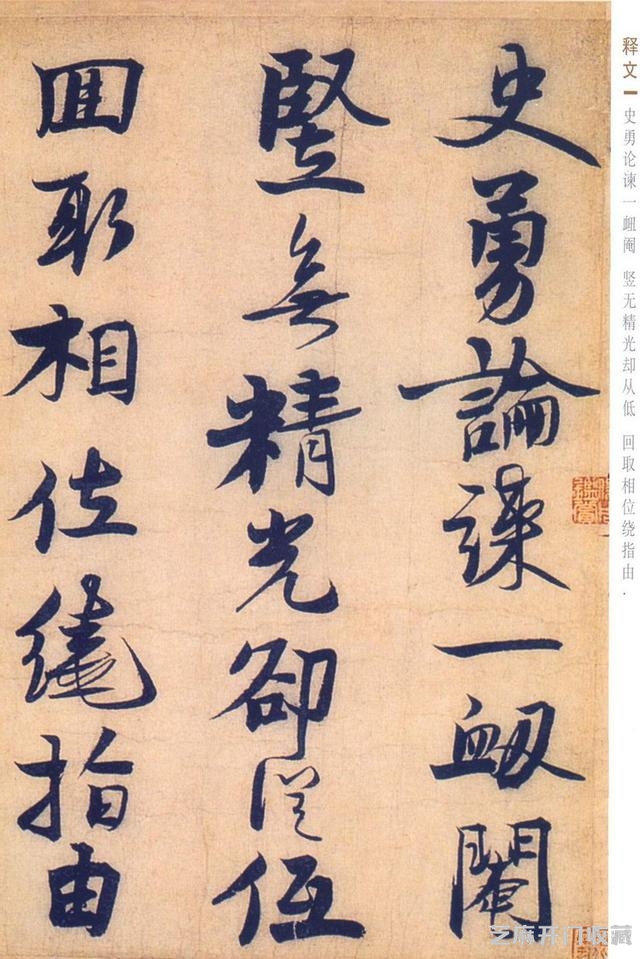 释文 史勇论谏一衄阉 竖无精光却从低 回取相位绕指由.
史勇論諫一衄閹
豎無精光卻從低
回取相位繞指由
芝麻开门收藏